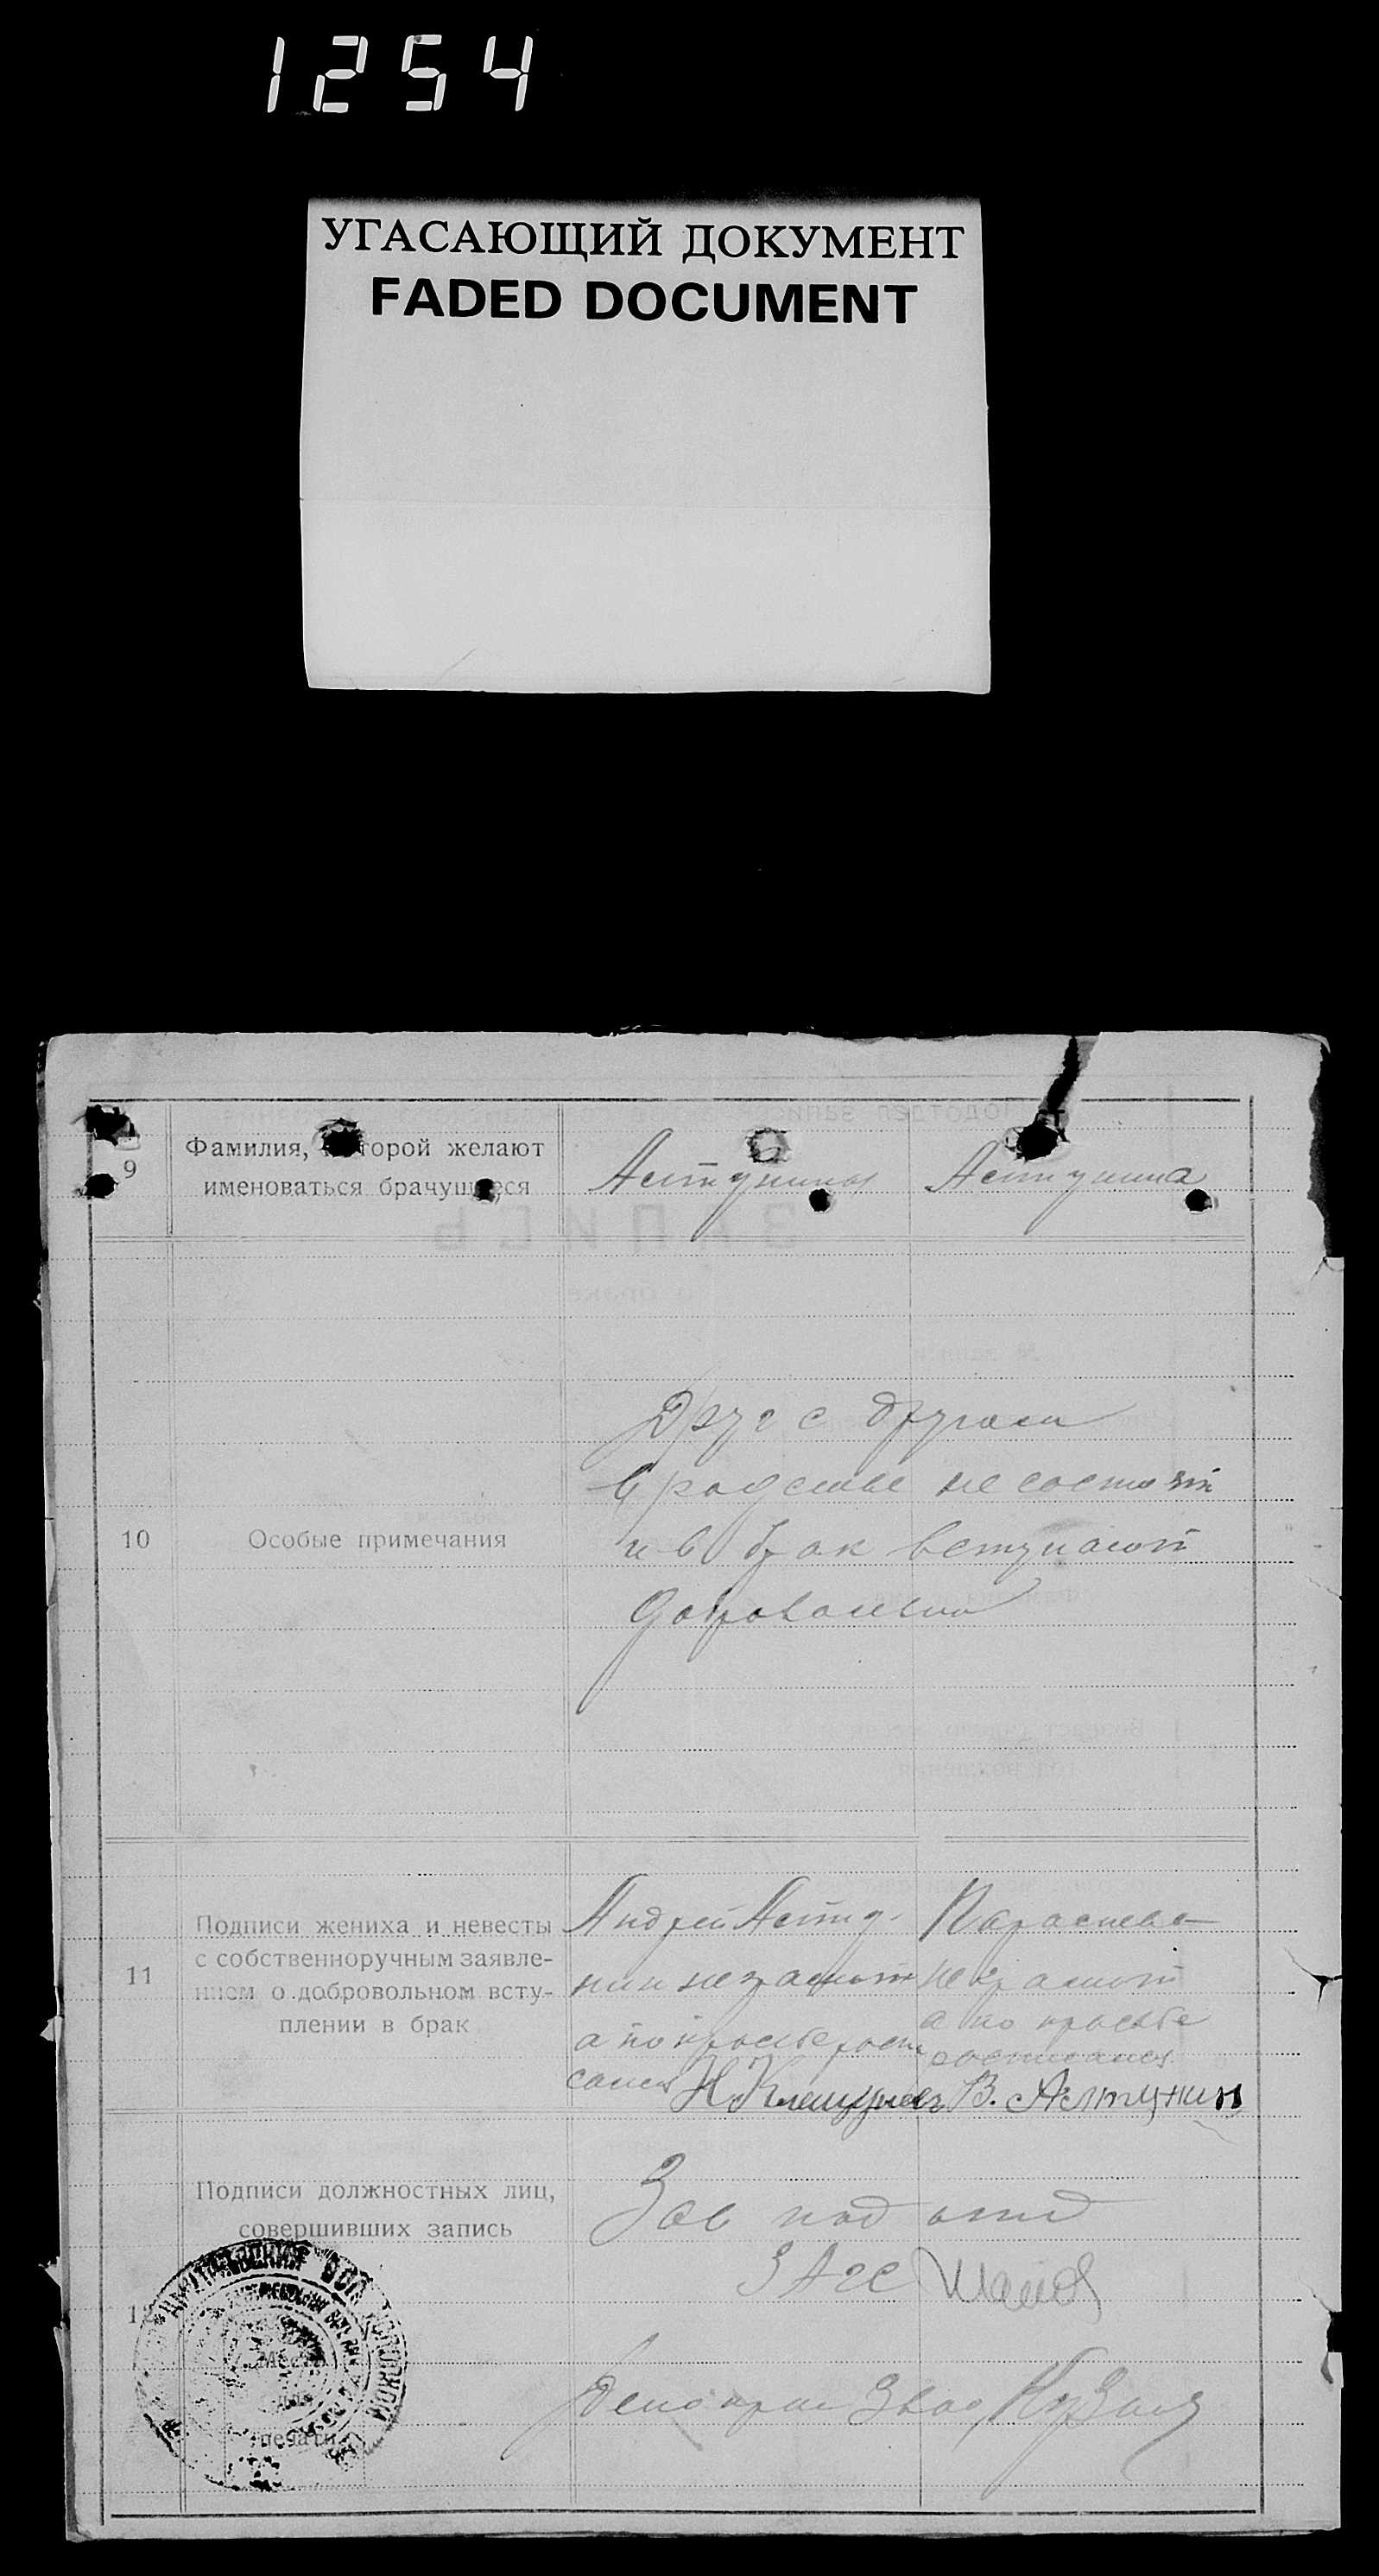 1254
УГАСАЮЩИЙ ДОКУМЕНТ
FADED DOCUMENT
9
Фамилия, которой желают
именоваться брачущиеся
Астунины
Астунина
Друг с другом
в родстве не состоят
и в брак вступают
10
Особые примечания
11
Подписи жениха и невесты
с собственноручным заявле-
нием о добровольном всту-
плении в брак
Андрей Асту-
нин неграмот
а по просьбе роспи
сался
неграмот
а по просьбе
росписался
В. Астунин
Подписи должностных лиц,
совершивших запись
Зав под отд
ЗАГС
Место
для
печати